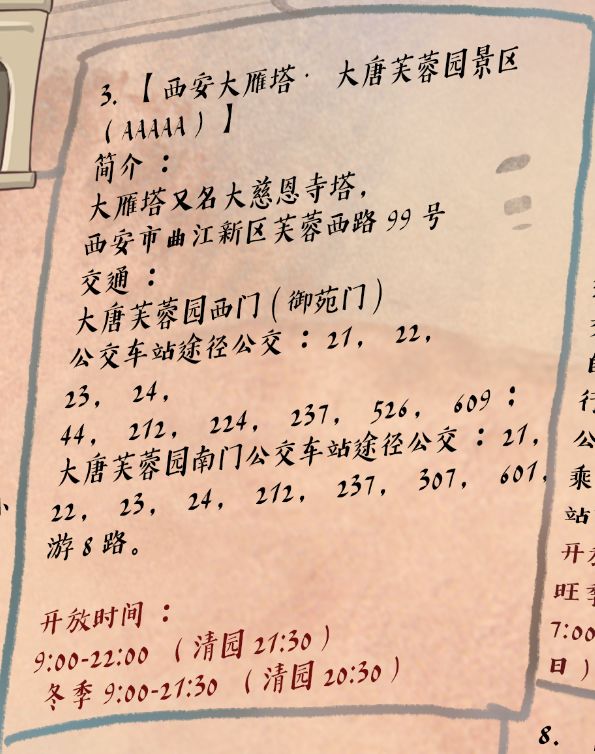 3. 【 西安大雁塔· 大唐芙蓉园景区
（AAAAA）】
简介 ：
大雁塔又名大慈恩寺塔，
西安市曲江新区芙蓉西路 99 号
交通 ：
大唐芙蓉园西门（御苑门）
公交车站途径公交 ：21， 22，
23， 24，
44， 212， 224， 237， 526， 609；
大唐芙蓉园南门公交车站途径公交 ：21，
22， 23， 24， 212， 237， 307， 601，
游 8 路。
开放时间 ：
9:00-22:00 （清园 21:30）
冬季 9:00-21:30 （清园 20:30）
行
公
乘
站
开
旺季
7:00
日）
8.